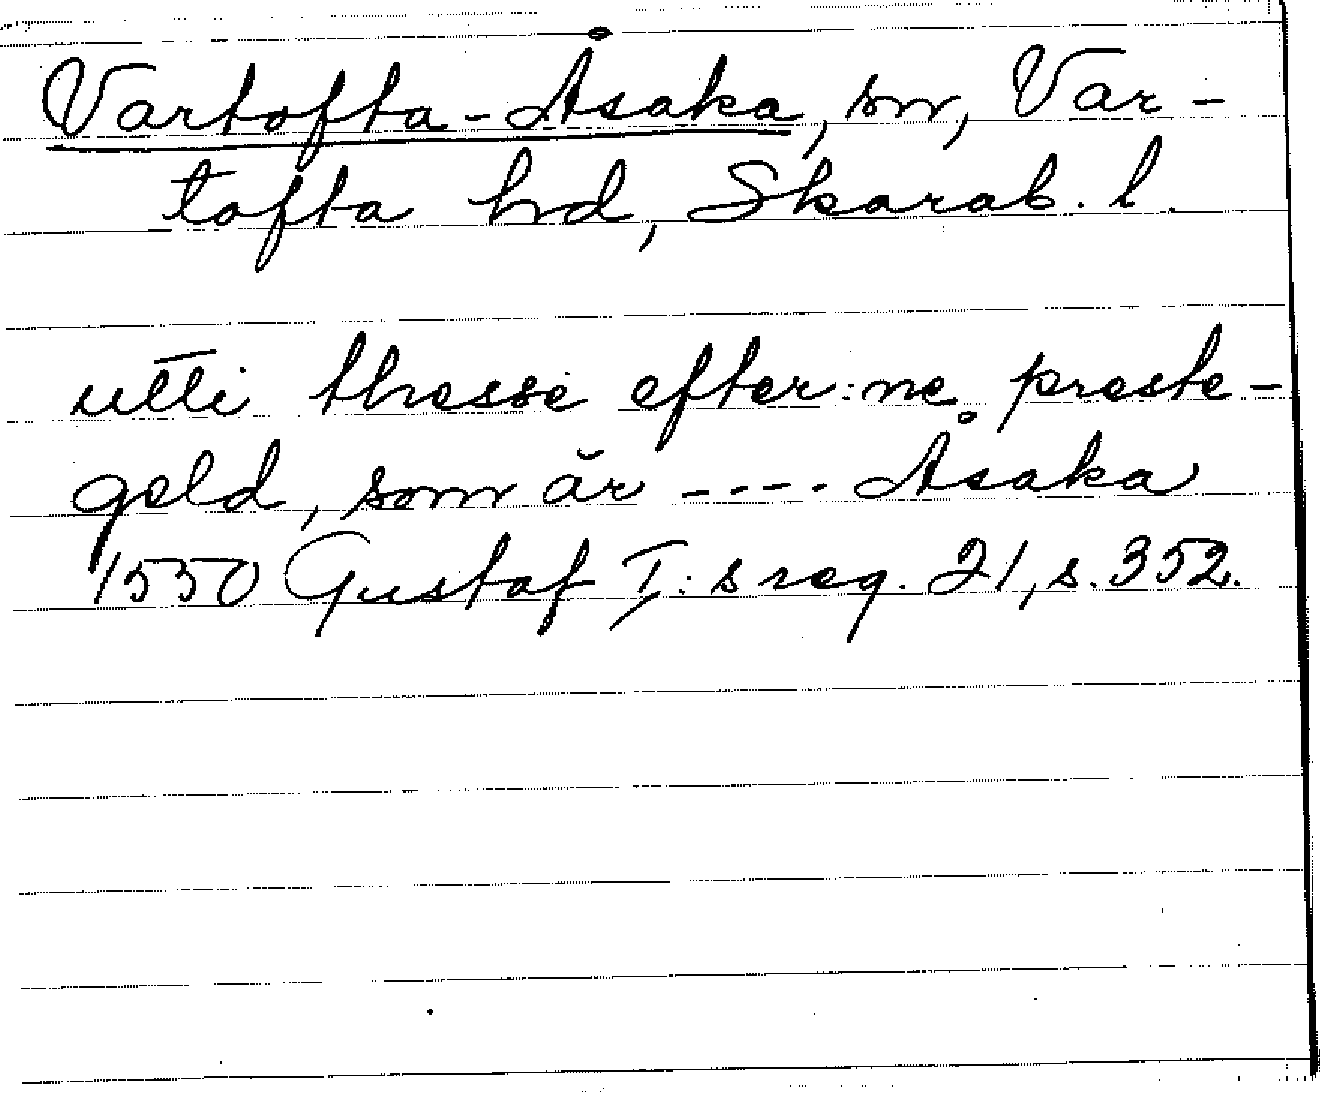 Vartofta-Åsaka, sn, Var-
tofta hd, Skarab. l.
utti thesse efter:ne preste-
geld, som är ---- Åsaka
1550 Gustaf I:s reg. 21, s. 352.